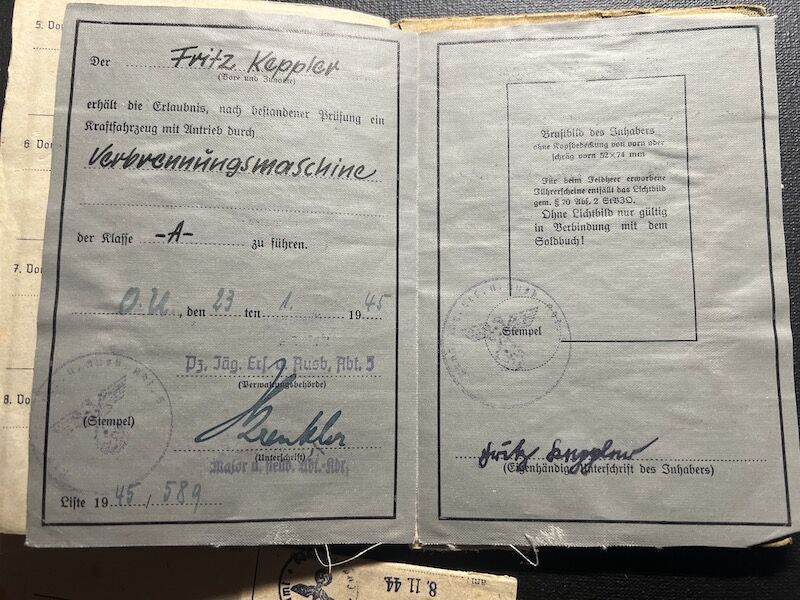 5. Do
6. Do
7. Do
8. Do
Der Fritz Keppler
(Vor- und Zuname)
erhält die Erlaubnis, nach bestandener Prüfung ein
Kraftfahrzeug mit Antrieb durch
Verbrennungsmaschine
der Klasse -A- zu führen.
O.U., den 23 ten 1. 1945
Pz. Jäg. Ers. u. Ausb. Abt. 5
(Verwaltungsbehörde)
(Stempel)
(Unterschrift)
Major u. stellv. Abt.-Kdr.
Liste 1945 / 589
Brustbild des Inhabers
ohne Kopfbedeckung von vorn oder
schräg vorn 52×74 mm
Für beim Feldheer erworbene
Führerscheine entfällt das Lichtbild
gem. § 70 Abs. 2 StVZO.
Ohne Lichtbild nur gültig
in Verbindung mit dem
Soldbuch!
Stempel
Fritz Keppler
(Eigenhändige Unterschrift des Inhabers)
am: 8. 11. 44